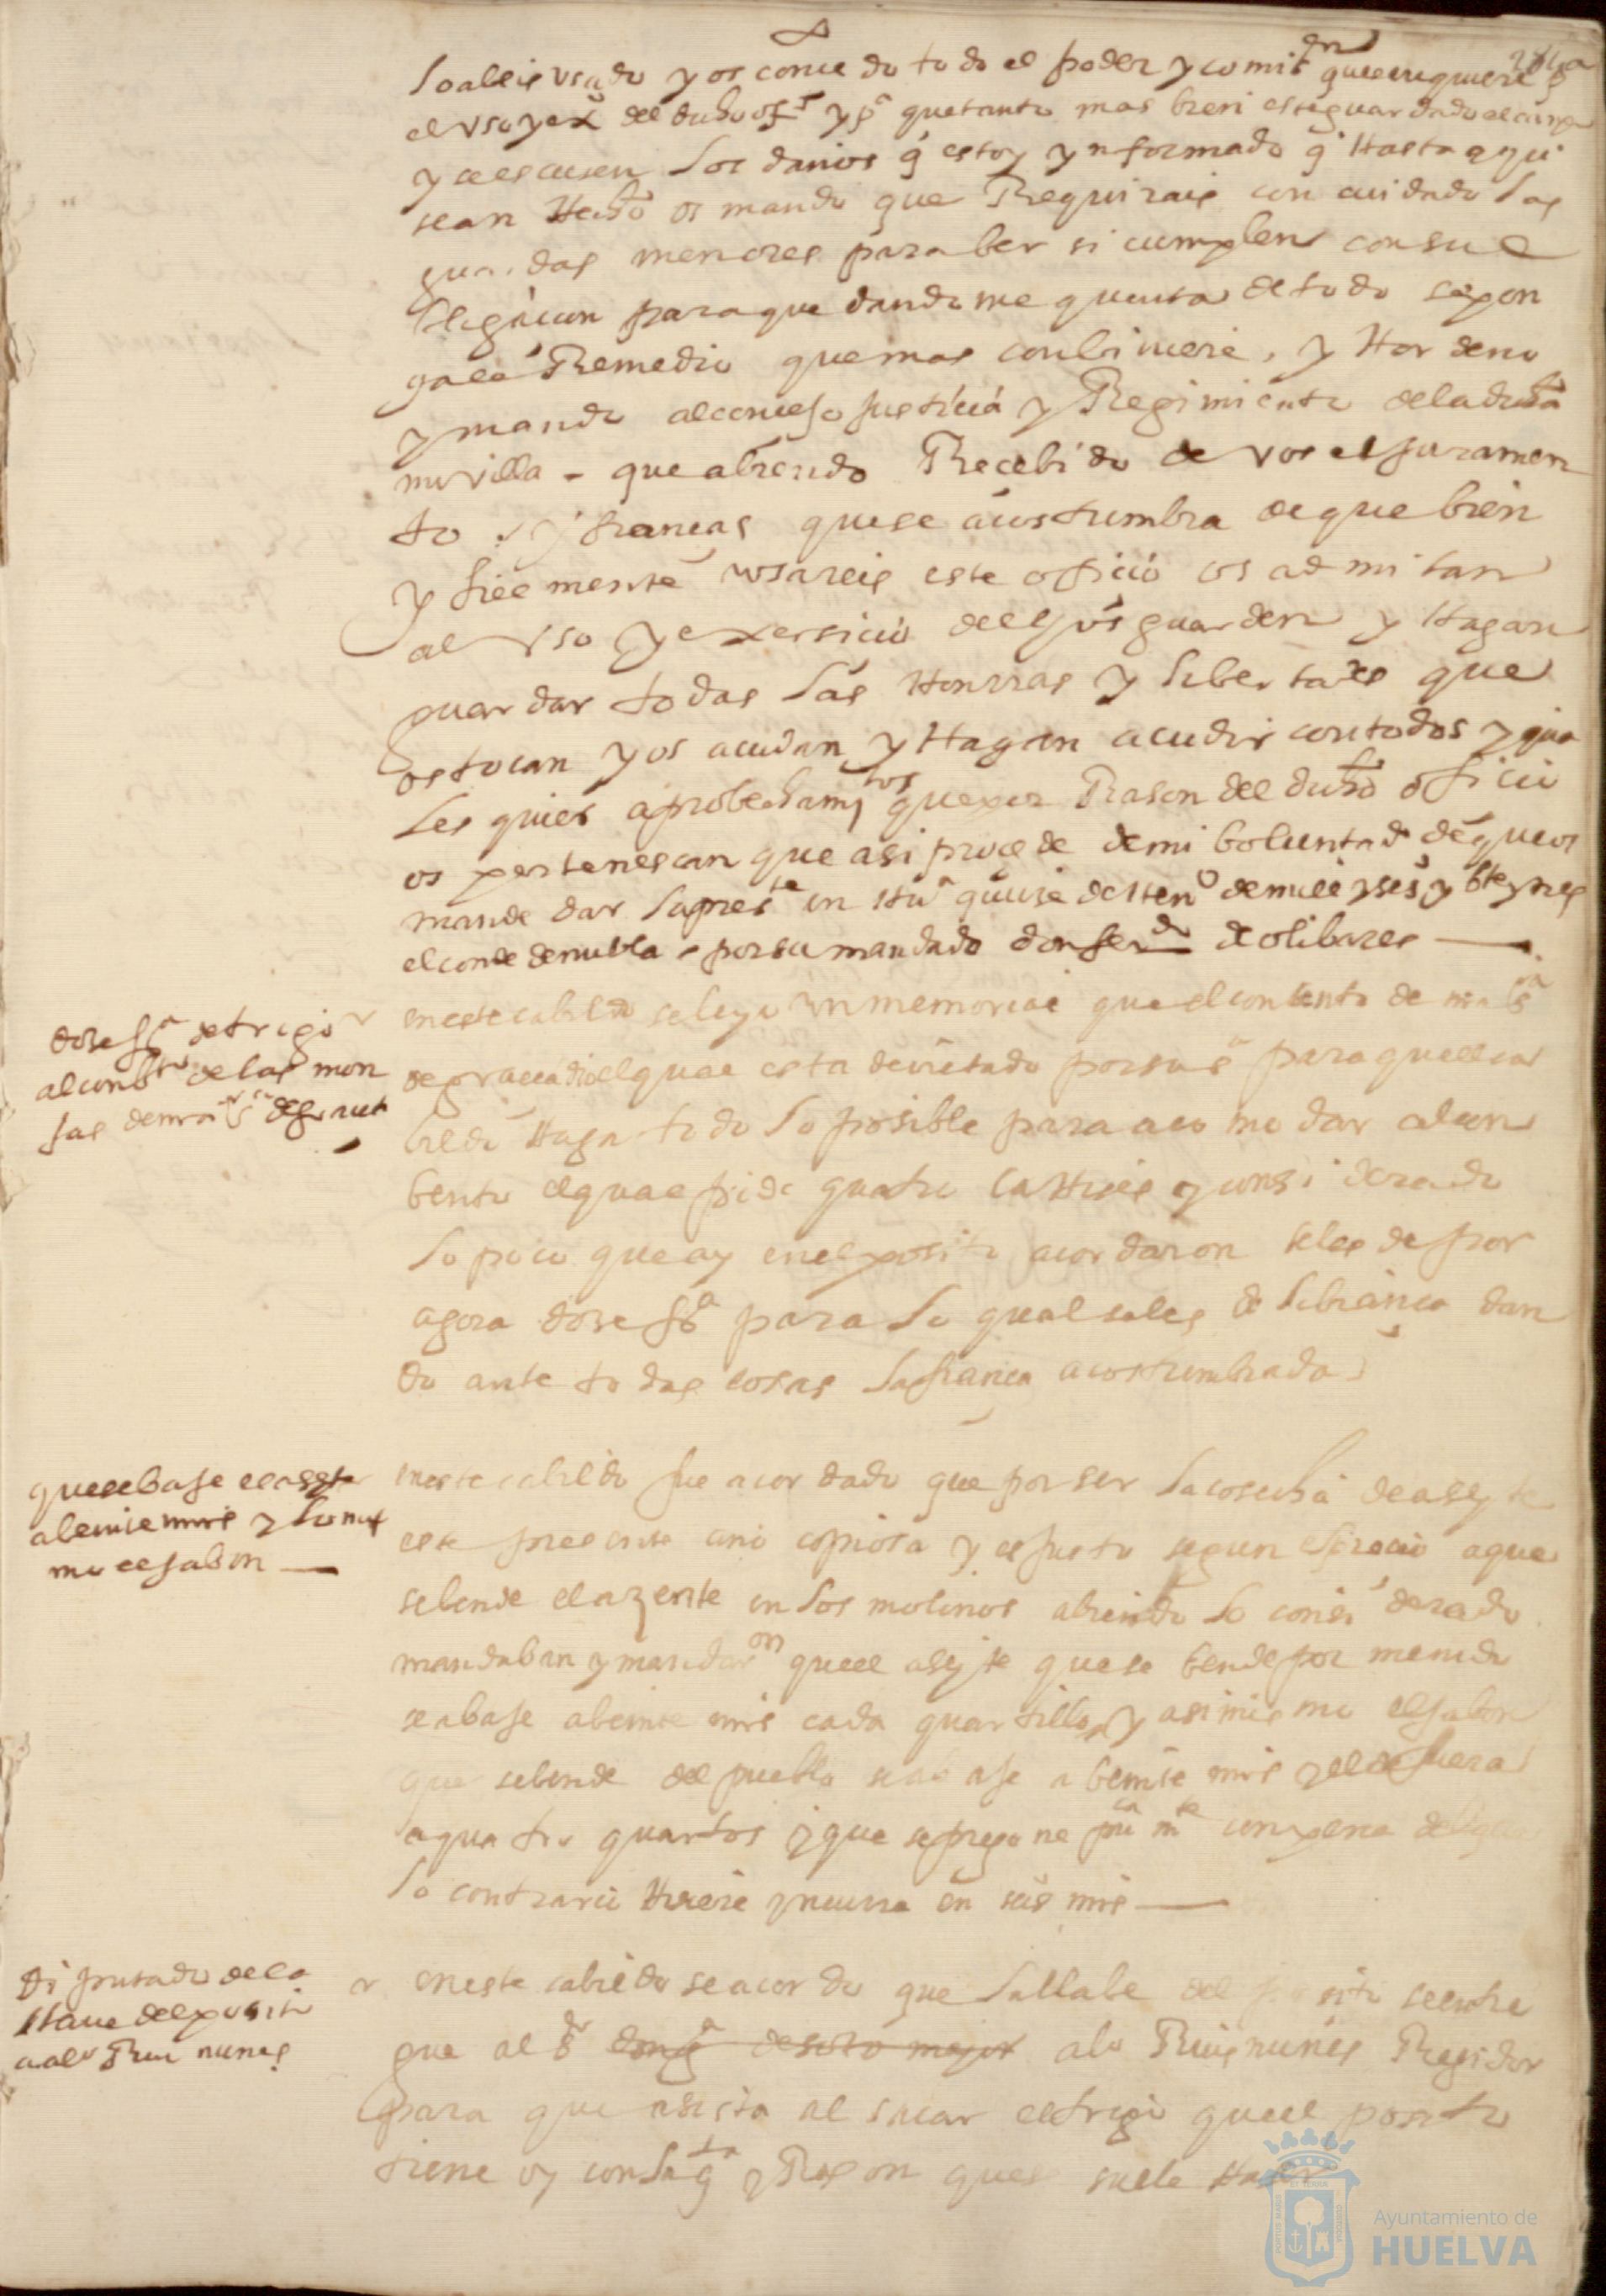 lo abeis usado y os concedo todo el poder y comison que se rrequiere pa
el uso y exo del dicho ofio y pa que tanto mas bien este guardado el campo
y se escusen los daños q estoy ynformado q Hasta aqui
sean Hecho os mando que Requirais con cuidado las
guardas menores para ber si cumplen con su o
bligacion para que dandome quenta de todo se pon
ga el Remedio que mas conbiniere, y Hordeno
y mando al concejo justicia y Regimiento de la dicha
mi villa - que abiendo Recebido de vos el juramen
to y fianças que se acostumbra de que bien
y fielmente usareis este oficio os admitan
al uso y exersicio del y os guarden y Hagan
guardar todas las Honrras y libertades que
os tocan y os acudan y Hagan acudir con todos y qua
les quier aprobechamtos que por Rason del dicho oficio
os pertenescan que asi procede de mi boluntad de que os
mande dar la preste en Hua quinse de Heno de mill y ses y bte y tres
el conde de niebla - por su mandado don ferdo de olibares
dose fas de trigo
al conbto de las mon
jas de nra sa de gracia
en este cabildo se leyo un memorial que el conbento de nra sa
de gracia dio el qual esta decretado por su sa para que el ca
bildo Haga todo lo posible para acomodar al con
bento el qual pide quatro cahises y considerado
lo poco que ay en el posito acordaron se les de por
agora dose fas para lo qual se les de librança dan
do ante todas cosas la fiança acostumbrada
que se baje el aseyte
a beinte mrs y lo mis
mo el jabon
en este cabildo fue acordado que por ser la cosecha de aseyte
este presente año copiosa y es justo segun el precio a que
se bende el azeyte en los molinos abiendolo considerado
mandaban y mandaron que el aseyte que se bende por menudo
se abaje a beinte mrs cada quartillo y asimismo el jabon
que se bende del pueblo se abaje a beinte mrs y el de fuera
a quatro quartos y que se pregone puca mte con pena del que
lo contrario Hiciere yncurra en seis mrs
Diputado de la
llave del posito
a alo Rui nunes
en este cabildo se acordo que la llabe del posito se entre
gue al sr don ga de soto mayor alo Ruis nunes Regidor
para que asista al sacar el trigo que el posito
tiene oy con la qta y Rason que se suele Haser
Ayuntamiento de
HUELVA